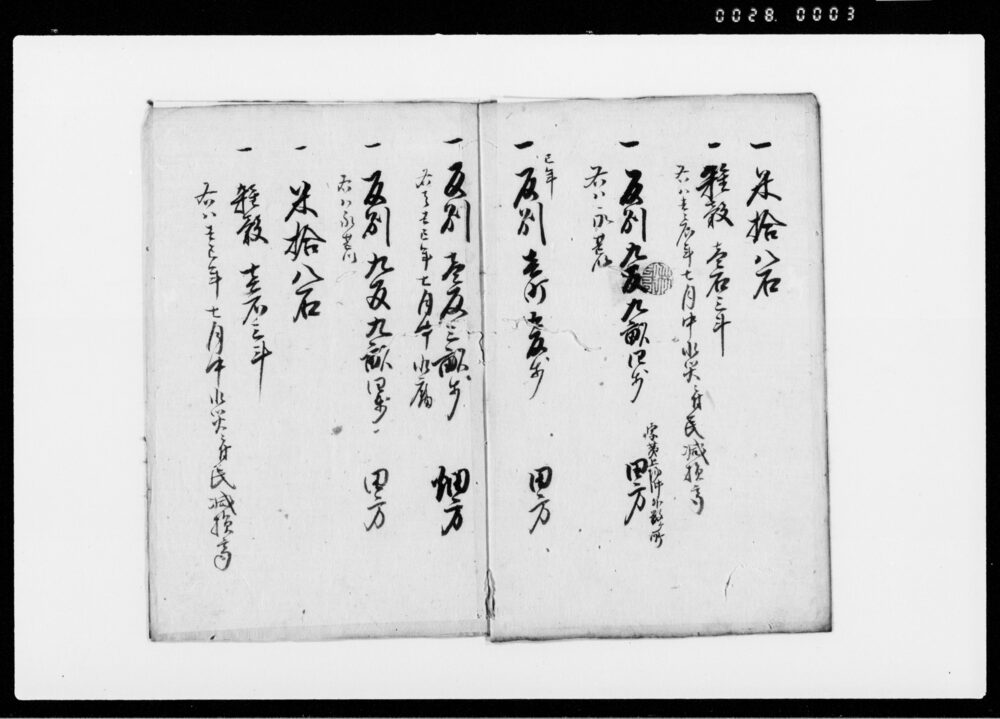 0028. 0003
一 米拾八石
一 雜穀 壱石三斗
右ハ壬辰年七月中水災ニ付民減損高
一 反別 九反九畝四歩 田方
右ハ永荒
巳年
一 反別 壱町七反歩 田方
一 反別 壱反三畝歩 畑方
年七月中水腐
一 反別 九反九畝四歩 田方
右ハ永荒
一 米拾八石
一 雜穀 壱石三斗
右ハ巳年七月中水災ニ付民減損高